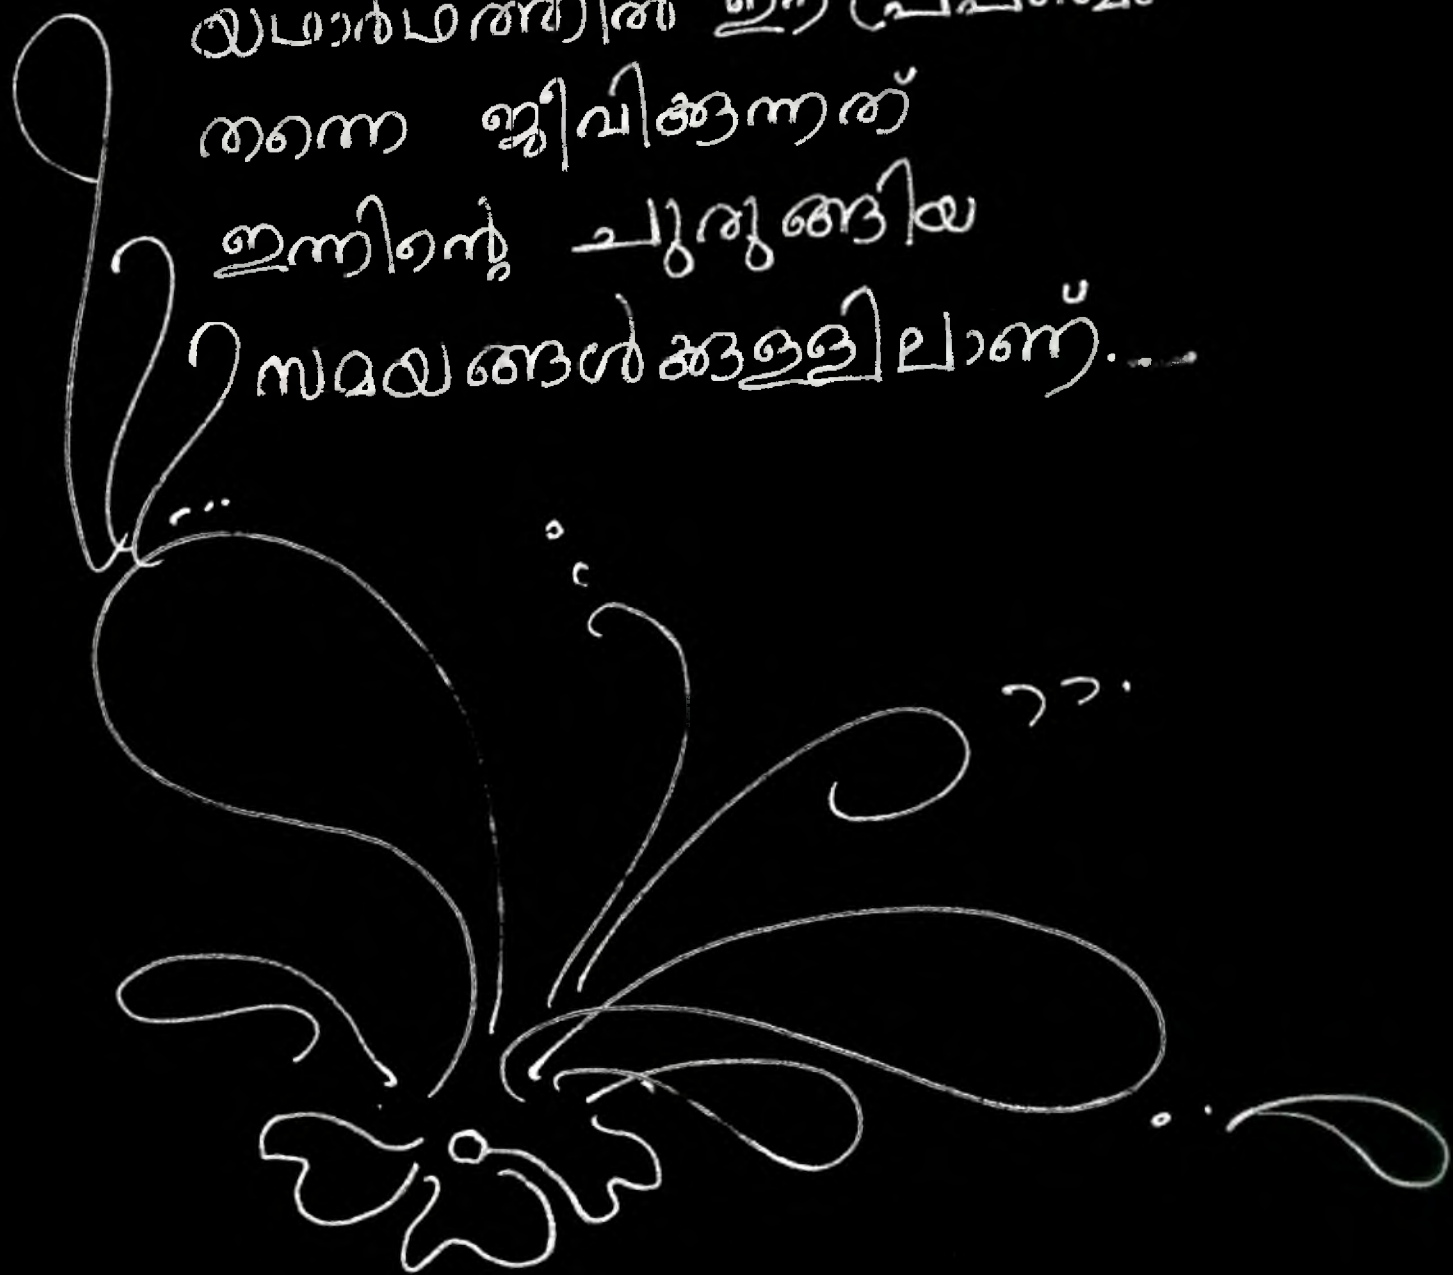 യഥാർഥത്തിൽ ഈ പ്രപഞ്ചം
തന്നെ ജീവിക്കുന്നത്
ഇന്നിന്റെ ചുരുങ്ങിയ
സമയങ്ങൾക്കുള്ളിലാണ്....